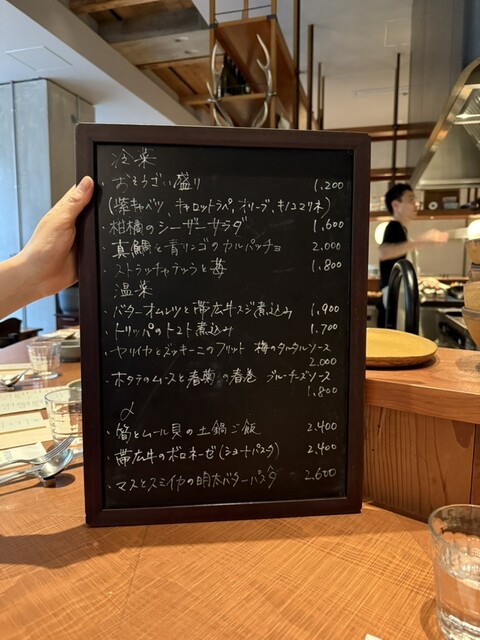 冷菜
・おそうざい盛り 1,200
(紫キャベツ、キャロットラペ、オリーブ、キノコマリネ)
・柑橘のシーザーサラダ 1,600
・真鯛と青リンゴのカルパッチョ 2,000
・ストラッチャテッラと苺 1,800
温菜
・バターオムレツと帯広牛スジ煮込み 1,900
・トリッパのトマト煮込み 1,700
・ヤリイカとズッキーニのフリット 梅のタルタルソース
2,000
・ホタテのムースと春菊の春巻 ブルーチーズソース
1,800
〆
・筍とムール貝の土鍋ご飯 2,400
・帯広牛のボロネーゼ(ショートパスタ) 2,400
・マスとスミイカの明太バターパスタ 2,600